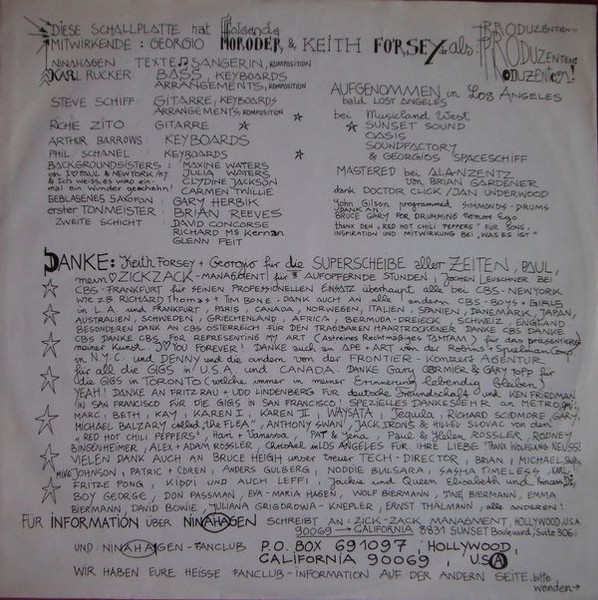 DIESE SCHALLPLATTE hat folgende
MITWIRKENDE: GEORGIO MORODER, & KEITH FORSEY als: PRODUZENTEN!
NINAHAGEN TEXTE SÄNGERIN, KOMPOSITION
KARL RUCKER BASS, KEYBOARDS
ARRANGEMENTS, KOMPOSITION
STEVE SCHIFF GITARRE, KEYBOARDS
ARRANGEMENTS, KOMPOSITION
RICHIE ZITO GITARRE
ARTHUR BARROWS: KEYBOARDS
PHIL SCHANEL KEYBOARDS
BACKGROUNDSISTERS: MAXINE WATERS
von I ♡ PAUL & NEWYORK/NY JULIA WATERS
& Ich weiss, es wird ein- CLYDINE JACKSON
mal ein Wunder geschehn! CARMEN TWILLIE
BEBLASENES SAXOFON GARY HERBIK
erster TONMEISTER BRIAN REEVES
ZWEITE SCHICHT DAVID CONCORSE
RICHARD McKernan
GLENN FEIT
AUFGENOMMEN in LOS ANGELES
bald LOST ANGELES
bei Musicland West
SUNSET SOUND
OASIS
SOUNDFACTORY
& GEORGIOS SPACESCHIFF
MASTERED bei ALLANZENTZ
von BRIAN GARDENER
dank DOCTOR CLICK / JAN UNDERWOOD
John Gilson programmed SIMMONDS-DRUMS
DANK AN
BRUCE GARY FOR DRUMMING
thanx den "RED HOT CHILI PEPPERS" FÜR SONG,
INSPIRATION UND MITWIRKUNG BEI „WAS ES IST"
DANKE: Keith FORSEY + Georgio für die SUPERSCHEIBE aller ZEITEN, PAUL,
mein ♡ ZICKZACK-MANAGEMENT für AUFOPFERNDE STUNDEN, JOCHEN LEUSCHNER BEI
CBS-FRANKFURT für SEINEN PROFESSIONELLEN EINSATZ überhaupt alle bei CBS-NEWYORK
wie z.B. RICHARD Thomas + TIM BONE. DANK AUCH AN alle andern CBS-BOYS + GIRLS
in L.A. und FRANKFURT, PARIS, CANADA, NORWEGEN, ITALIEN, SPANIEN, DÄNEMARK, JAPAN,
AUSTRALIEN, SCHWEDEN, GRIECHENLAND, AFRICA, BERMUDA-DREIECK, SCHWEIZ, ENGLAND
BESONDEREN DANK AN CBS ÖSTERREICH FÜR DEN TRAGBAREN HAARTROCKENER DANKE CBS DANKE
CBS DANKE CBS FOR REPRESENTING MY ART (Astreines Rechtmäßiges TAMTAM) für das präsentieren
meiner Kunst. I ♡ YOU FOREVER! DANKE auch an APE + ART von der Robins + Spielman Comp.
in N.Y.C. und DENNY und die andern von der FRONTIER-Konzert AGENTUR
für all die GIGS in U.S.A. und CANADA. DANKE Gary CORMIER & GARY TOPP für
die GIGS in TORONTO (welche immer in meiner Erinnerung lebendig bleiben)
YEAH! DANKE AN FRITZ RAU + UDO LINDENBERG FÜR deutsche Freundschaft und KEN FRIEDMAN
IN SAN FRANCISCO FÜR DIE GIGS IN SAN FRANCISCO! SPEZIELLES DANKESEHR AN METRO
MARC, BETH, KAY, KAREN I, KAREN II, WAYSATA, Tequila, RICHARD SCIDMORE, GARY,
MICHAEL BALZARY called „the FLEA", ANTHONY SWAN, JACK IRONS & HILLEL SLOVAC von den
„RED HOT CHILI PEPPERS" Hart + Vanessa, PAT & Jena, Paul & Helen ROSSLER, RODNEY
BINGENHEIMER, ALEX + ADAM ROSSLER, Christel in LOS ANGELES FÜR IHRE LIEBE! THANX WOLFGANG NEUSS!
VIELEN DANK AUCH AN BRUCE HEIGH unser treuer TECH-DIRECTOR, BRIAN, MICHAEL
MIKE JOHNSON, PATRIC + COREN, ANDERS GULBERG, NODDIE BULSARA, SASHA TIMELESS, KARL,
FRITZE PONG, KIDDI UND AUCH LEFFI, Jackie und Queen Elisabeth und Princess Di,
BOY GEORGE, DON PASSMAN, EVA-MARIA HAGEN, WOLF BIERMANN, TINE BIERMANN, EMMA
BIERMANN, DAVID BOWIE, JULIANA GRIGOROWA-KNEPLER, ERNST THÄLMANN, alle anderen!
FÜR INFORMATION ÜBER NINAHAGEN SCHREIBT AN: ZICK-ZACK MANAGMENT, HOLLYWOOD, U.S.A.
90069 → CALIFORNIA 8831 SUNSET Boulevard, Suite 306:
UND: NINAHAGEN-FANCLUB P.O. BOX 691097, HOLLYWOOD,
CALIFORNIA 90069, USA
WIR HABEN EURE HEISSE FANCLUB-INFORMATION AUF DER ANDERN SEITE. bitte
wenden →